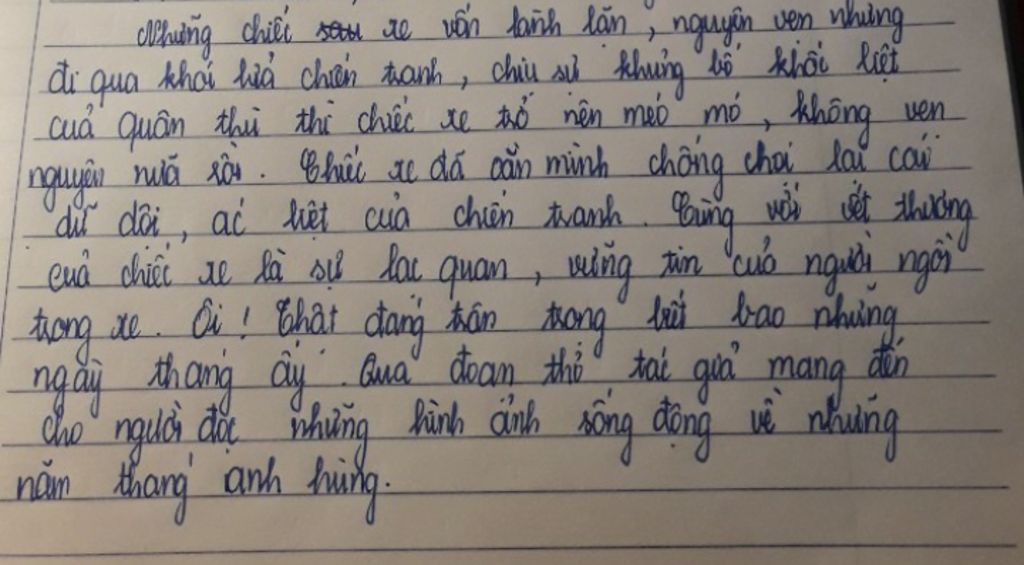 Những chiếc xe vốn lành lặn, nguyên vẹn nhưng
đi qua khói lửa chiến tranh, chịu sự khủng bố khốc liệt
của quân thù thì chiếc xe trở nên méo mó, không vẹn
nguyên nữa rồi. Chiếc xe đã oằn mình chống chọi lại cái
dữ dội, ác liệt của chiến tranh. Cùng với vết thương
của chiếc xe là sự lạc quan, vững tin của người ngồi
trong xe. Ôi! Thật đáng trân trọng biết bao những
ngày tháng ấy. Qua đoạn thơ tác giả mang đến
cho người đọc những hình ảnh sống động về những
năm tháng anh hùng.